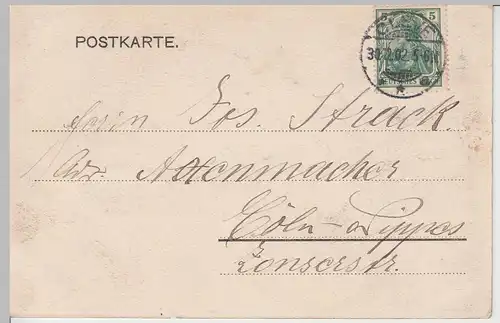 POSTKARTE.
5 5
Herrn Jos. Strack.
Adr. Axenmacher
Cöln-Nippes
Zonserstr.